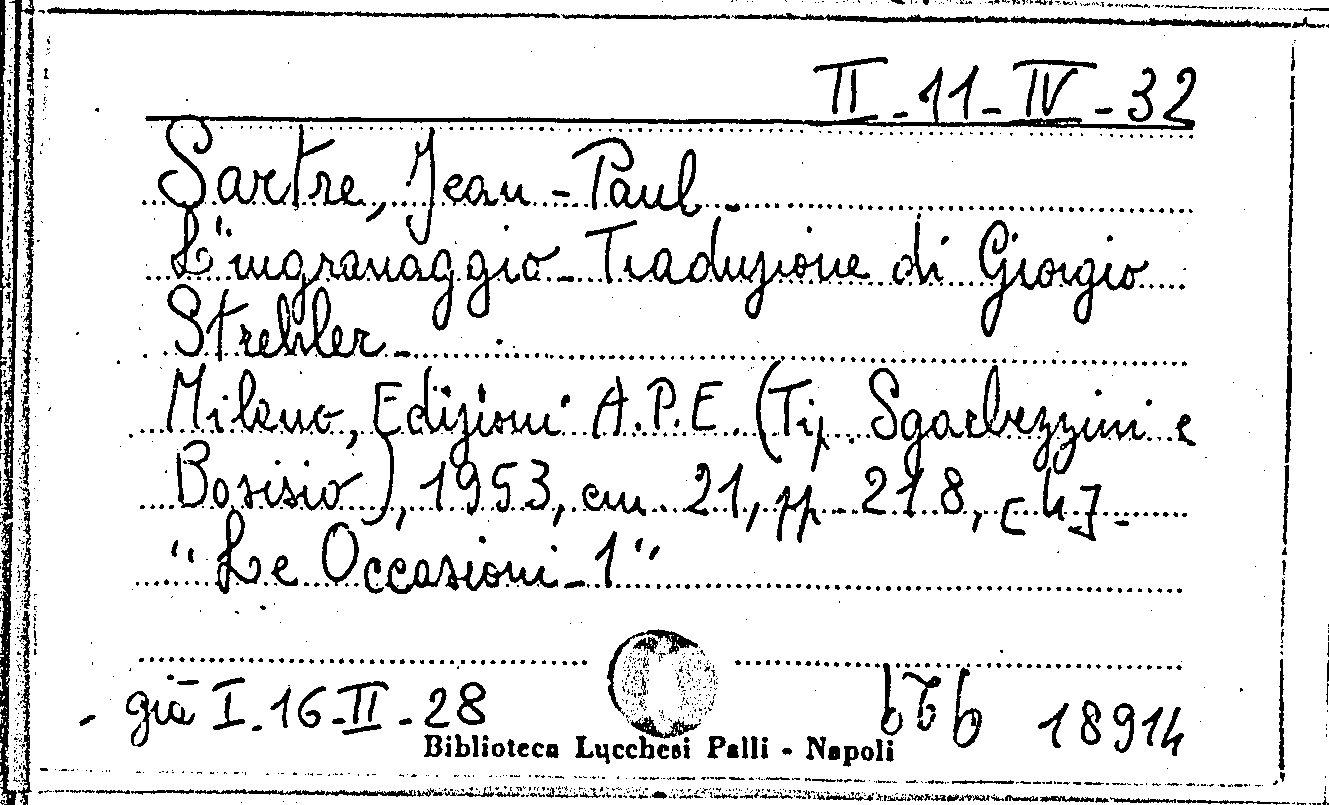 II - 11 - IV - 32
Sartre, Jean - Paul -
L'ingranaggio - Traduzione di Giorgio
Strehler -
Milano, Edizioni A.P.E (Tip. Sgarbezzini e
Bosisio), 1953, cm. 21, pp. 218, [4] -
"Le Occasioni - 1"
- già I. 16 - II - 28
18914
Biblioteca Lucchesi Palli - Napoli